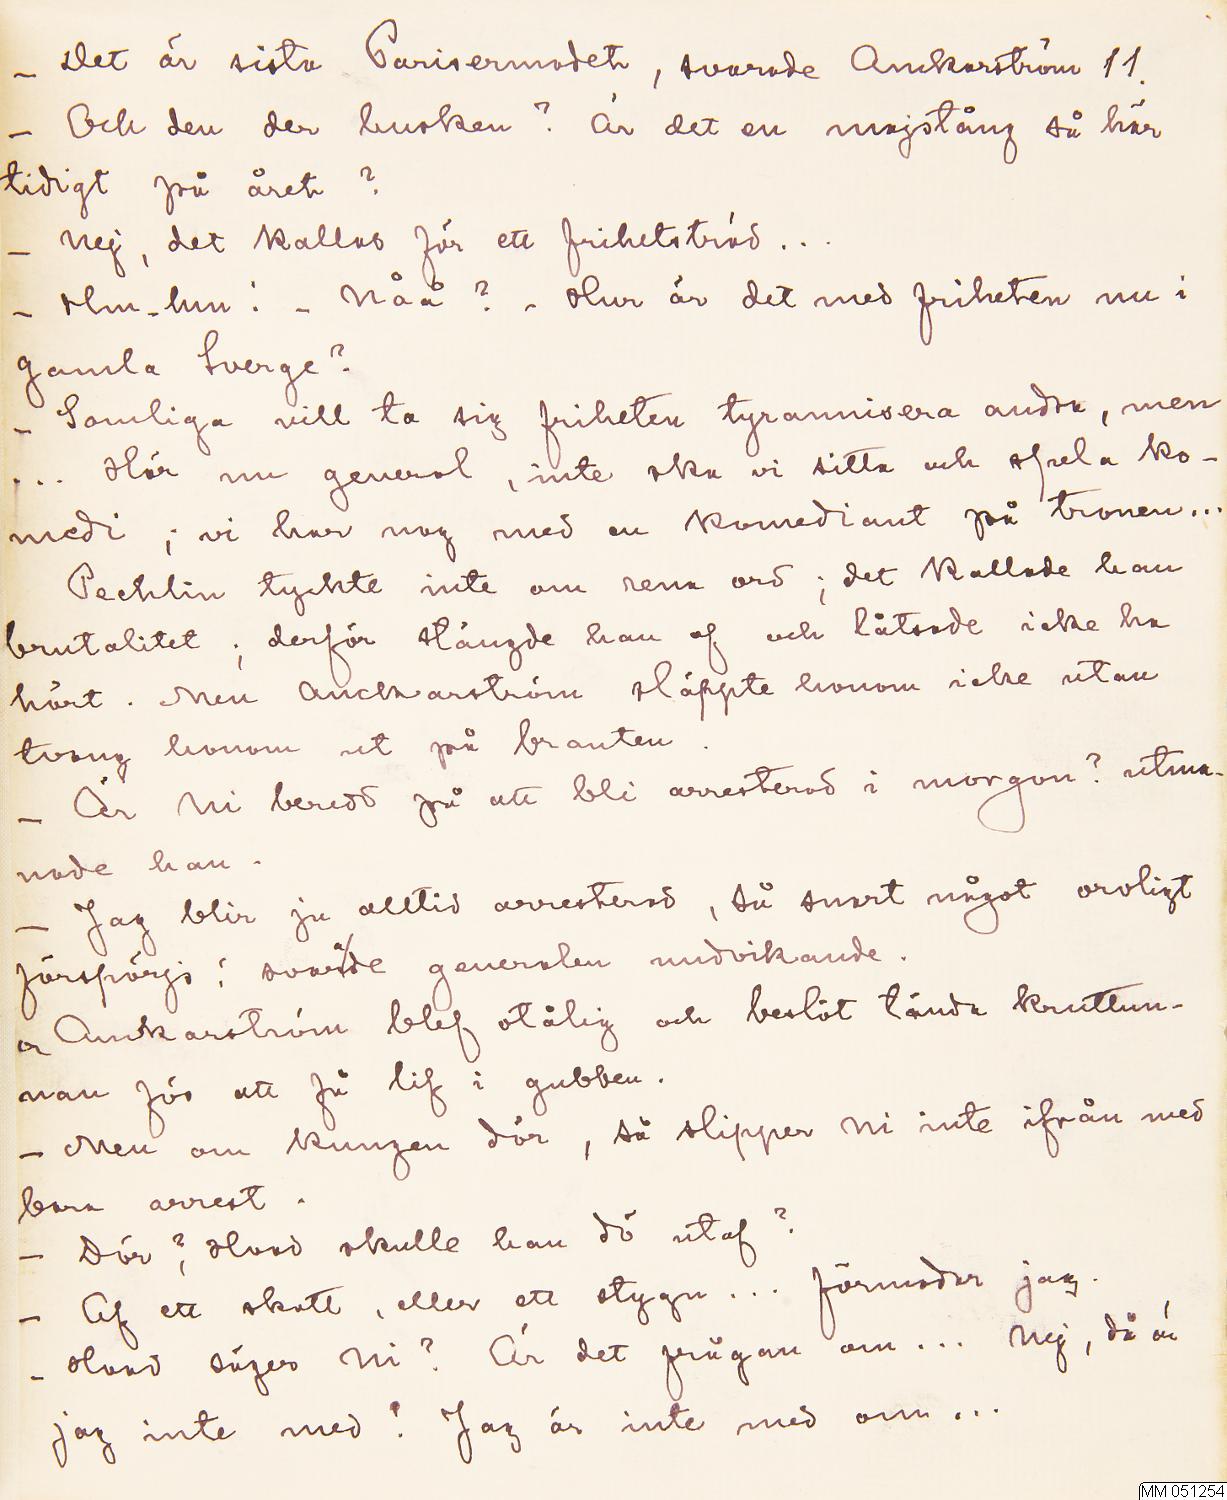 – Det är sista Parisermodet, svarade Anckarström 11.
– Och den der busken? Är det en majstång så här
tidigt på året?
– Nej, det kallas för ett frihetsträd...
– Hm-hm! – Nåå? – Hur är det med friheten nu i
gamla Sverge?
– Somliga vill ta sig friheten tyrannisera andra, men
... Hör nu general, inte ska vi sitta och spela ko-
medi; vi har nog med en komediant på tronen...
Pechlin tyckte inte om rena ord; det kallade han
brutalitet; derför stängde han af och låtsade icke ha
hört. Men Anckarström släppte honom icke utan
tvang honom ut på branten.
– Är Ni beredd på att bli arresterad i morgon? utma-
nade han.
– Jag blir ju alltid arresterad, så snart något oroligt
förspörjs; svarade generalen undvikande.
Anckarström blef otålig och beslöt tända kruttun-
nan för att få lif i gubben.
– Men om kungen dör, så slipper Ni inte ifrån med
bara arrest.
– Dör? Hvad skulle han dö utaf?
– Af ett skott, eller ett stygn... förmodar jag.
– Hvad säger Ni? Är det frågan om... Nej, då är
jag inte med! Jag är inte med om...
MM 051254